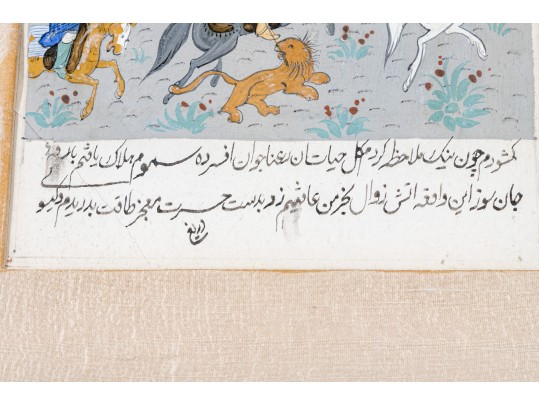 کشودم چون نیک ملاحظه کردم گل حیات ان رعنا جوان افسرده سموم هلاک یافتم
جان سوز این واقعه اتش زوال بخرمن عافیتم زد بدست حسرت معجر طاقت بدریدم
دریغ